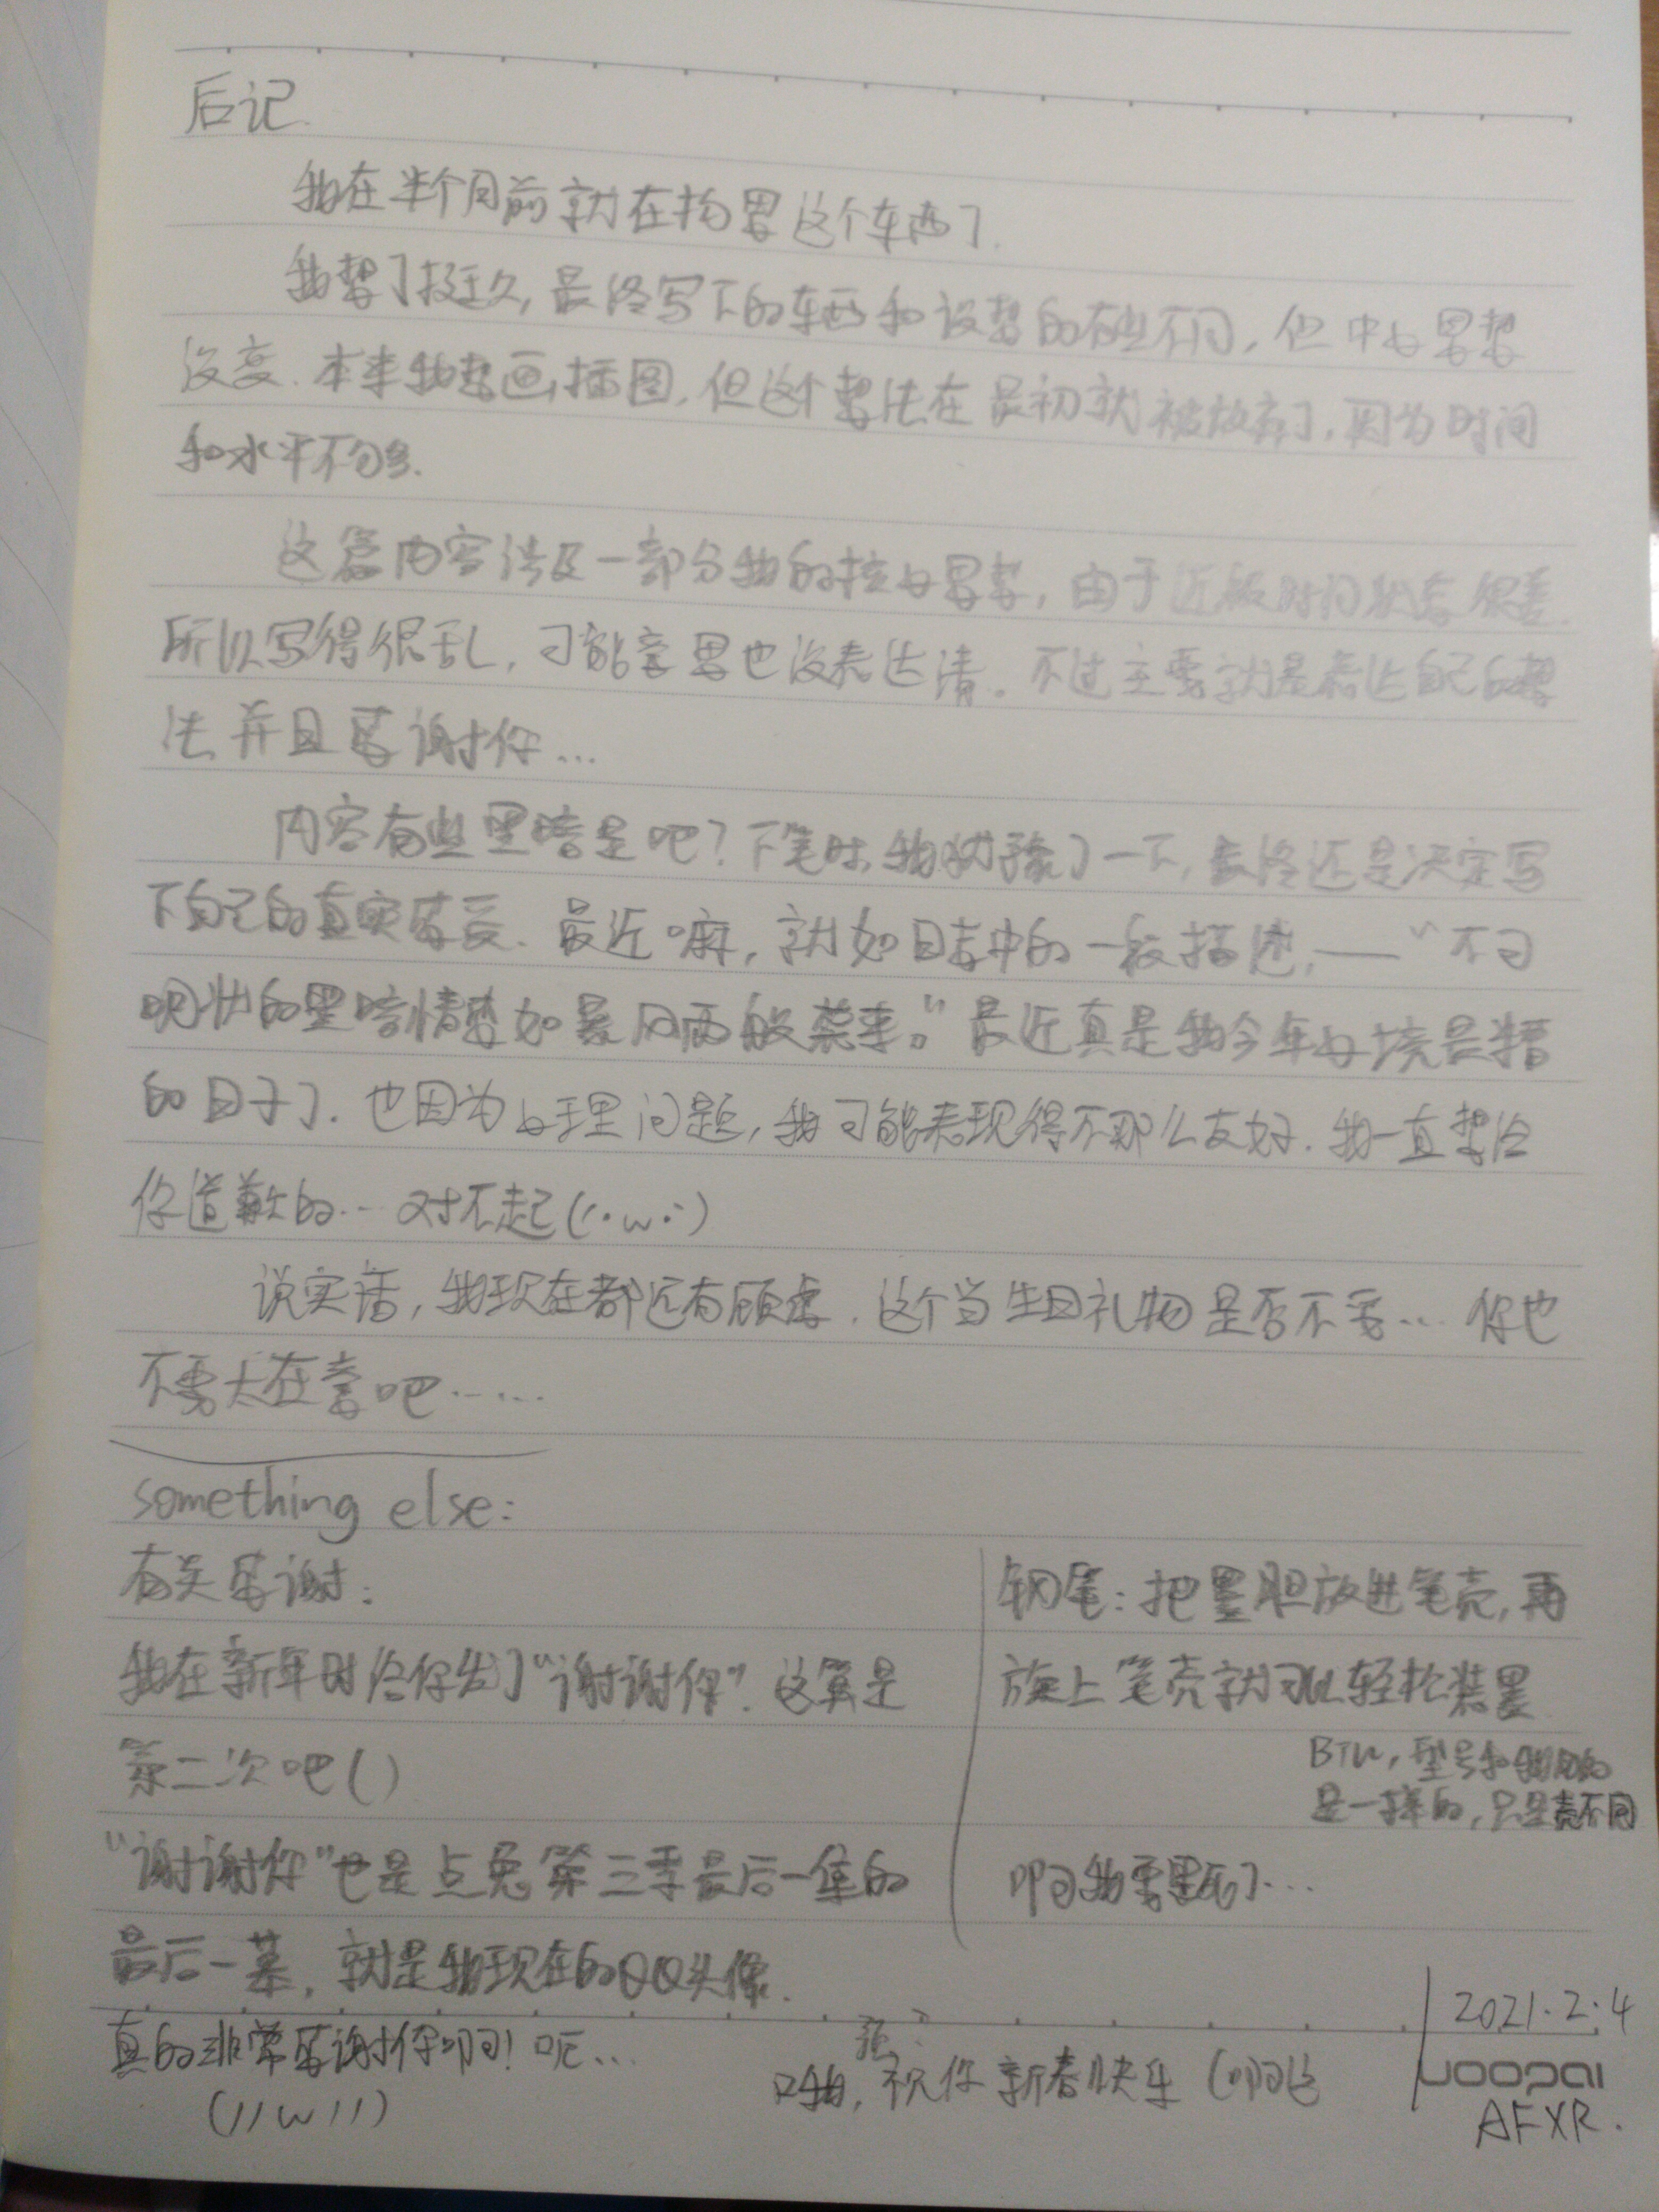 后记.
我在半个月前就在构思这个东西了.
我想了挺久,最终写下的东西和设想的有些不同,但中心思想
没变.本来我想画插图,但这个想法在最初就被放弃了,因为时间
和水平不够.
这篇内容涉及一部分我的核心思想,由于近段时间状态很差.
所以写得很乱,可能意思也没表达清。不过主要就是表达自己的想
法并且感谢你...
内容有些黑暗是吧?下笔时,我犹豫了一下,最终还是决定写
下自己的真实感受.最近嘛,就如日志中的一段描述,——“不可
名状的黑暗情感如暴风雨般袭来。”最近真是我今年心境最糟
的日子了.也因为心理问题,我可能表现得不那么友好.我一直想给
你道歉的...对不起(;·w·)
说实话,我现在都还有顾虑.这个当生日礼物是否不妥...你也
不要太在意吧......
something else:
有关感谢:
我在新年时给你发了“谢谢你”.这算是
第二次吧()
“谢谢你”也是点兔第三季最后一集的
最后一幕,就是我现在的QQ头像.
真的非常感谢你啊!呃...
(//w//)
钢笔:把墨胆放进笔壳,再
旋上笔壳就可以轻松装墨
BTW,型号和我用的
是一样的,只是壳不同
啊我要累死了...
祝你新春快乐(啊这
2021.2.4
uoopai
AFXR.